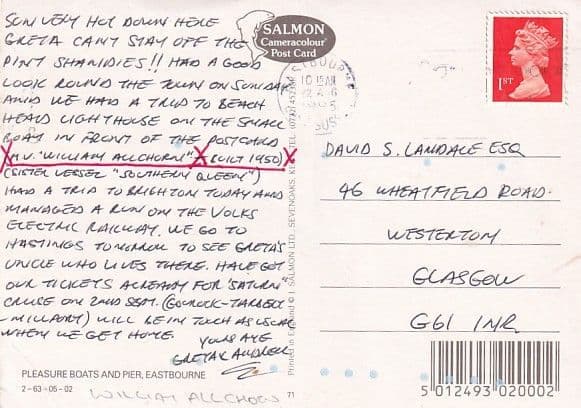 SUN VERY HOT DOWN HERE
GRETA CAN'T STAY OFF THE
PINT SHANDIES!! HAD A GOOD
LOOK ROUND THE TOWN ON SUNDAY
AND WE HAD A TRIP TO BEACH
HEAD LIGHTHOUSE ON THE SMALL
BOAT IN FRONT OF THE POSTCARD
M.V. "WILLIAM ALLCHORN" (BUILT 1950)
(SISTER VESSEL "SOUTHERN QUEEN")
HAD A TRIP TO BRIGHTON TODAY AND
MANAGED A RUN ON THE VOLKS
ELECTRIC RAILWAY. WE GO TO
HASTINGS TOMORROW TO SEE GRETA'S
UNCLE WHO LIVES THERE. HAVE GOT
OUR TICKETS ALREADY FOR "SATURN"
CRUISE ON 2ND SEPT. (GOUROCK-TARBERT
-MILLPORT) WILL BE IN TOUCH AS USUAL
WHEN WE GET HOME.
YOURS AYE
GRETA & ANDREW
PLEASURE BOATS AND PIER, EASTBOURNE
2-63-05-02
WILLIAM ALLCHORN
71
SALMON
Cameracolour
Post Card
Printed in England © J. SALMON LTD., SEVENOAKS, KENT. TEL: (0732) 452381
1ST
DAVID S. LANDALE ESQ
46 WHEATFIELD ROAD.
WESTERTON
GLASGOW
G61 1NR
5 012493 020002